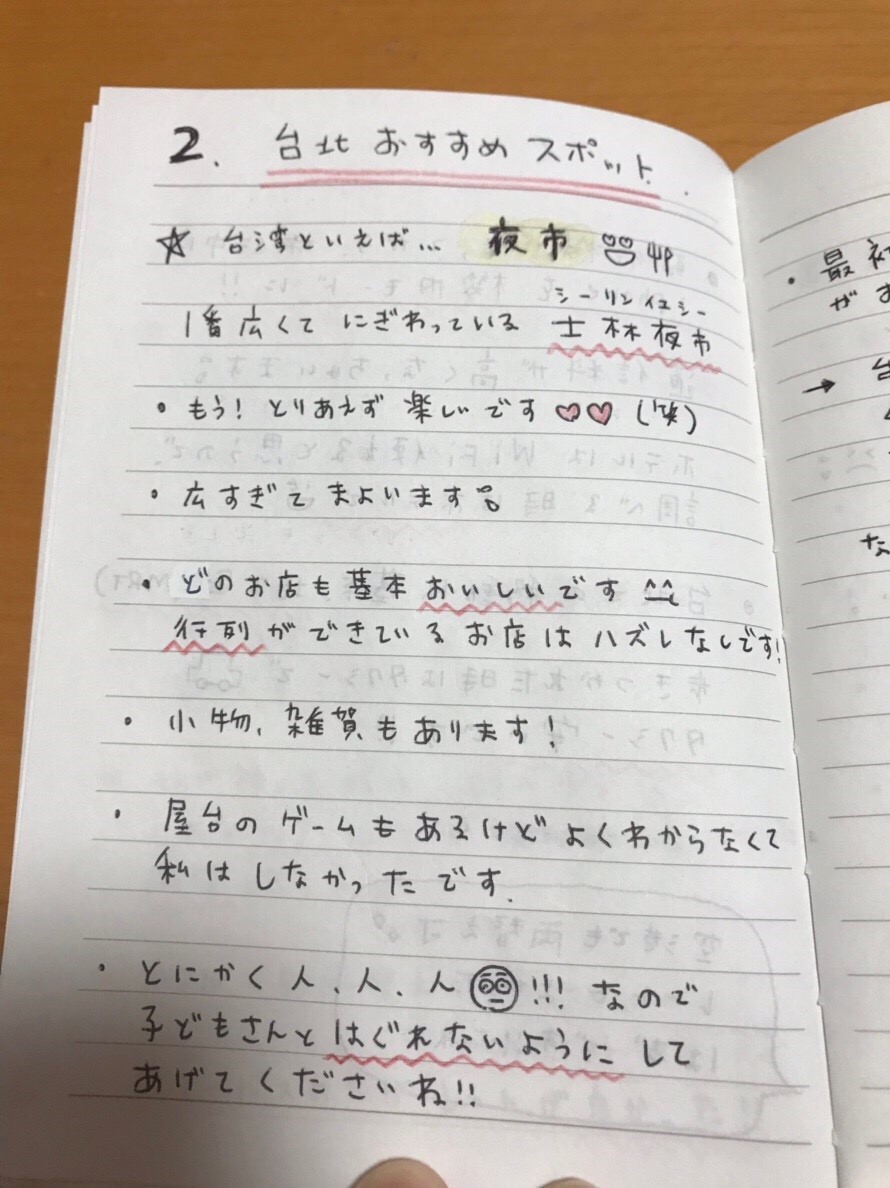 2. 台北おすすめスポット
☆ 台湾といえば… 夜市
シーリンイエシー
1番広くてにぎわっている 士林夜市
・もう！とりあえず楽しいです♡♡(笑)
・広すぎてまよいます
・どのお店も基本おいしいです^^
行列ができているお店はハズレなしです!
・小物、雑貨もあります！
・屋台のゲームもあるけどよくわからなくて
私はしなかったです.
・とにかく人、人、人 !!! なので
子どもさんとはぐれないようにして
あげてくださいね!!
・最初
がお
→ 台
な